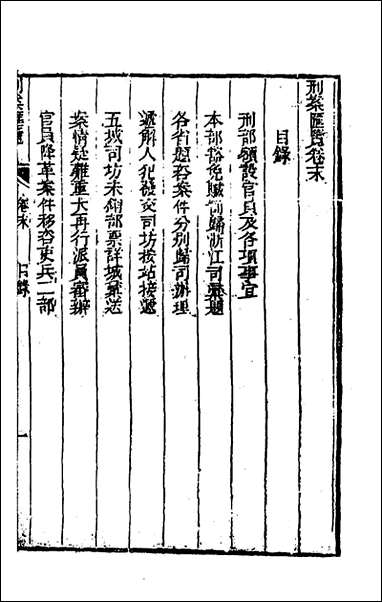 刑案匯覽卷末
目錄
刑部額設官員及各項事宜
本部豁免贓罰歸浙江司彙題
各省題咨案件分別歸司辦理
遞解人犯發交司坊按站接遞
五城司坊未領部票詳城彙送
案情疑難重大再行派員審辦
官員降革案件移咨吏兵二部
刑案匯覽 卷末 目錄 一